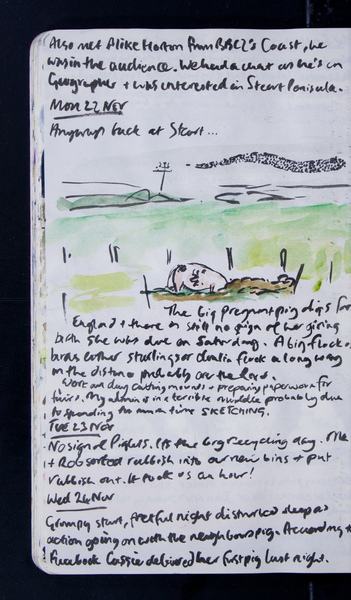 Also met Alike Horton from BBC2's Coast, he
was in the audience. We had a chat as he's an
Geographer + was interested in Steart Peninsula.
Mon 22 Nov
Anyways back at Steart...
The big pregnant pig digs for
England + there is still no sign of her giving
birth she was due on Saturday. A big flock o
birds either starlings or dunlin flock a long way
in the distance probably on the
Work on day cutting mounts + preparing paperwork for
fairs. My admin is in a terrible muddle probably due
to spending too much time SKETCHING.
TUE 23 Nov
No signal flights. It's the big recycling day. Me
+ Rob sorted rubbish into our new bins + put
rubbish out. It took us an hour!
Wed 24 Nov
Grumpy start, fretful night disturbed sleep as
action going on with the neighbours pig. According t
Facebook Cassie delivered her first pig last night.